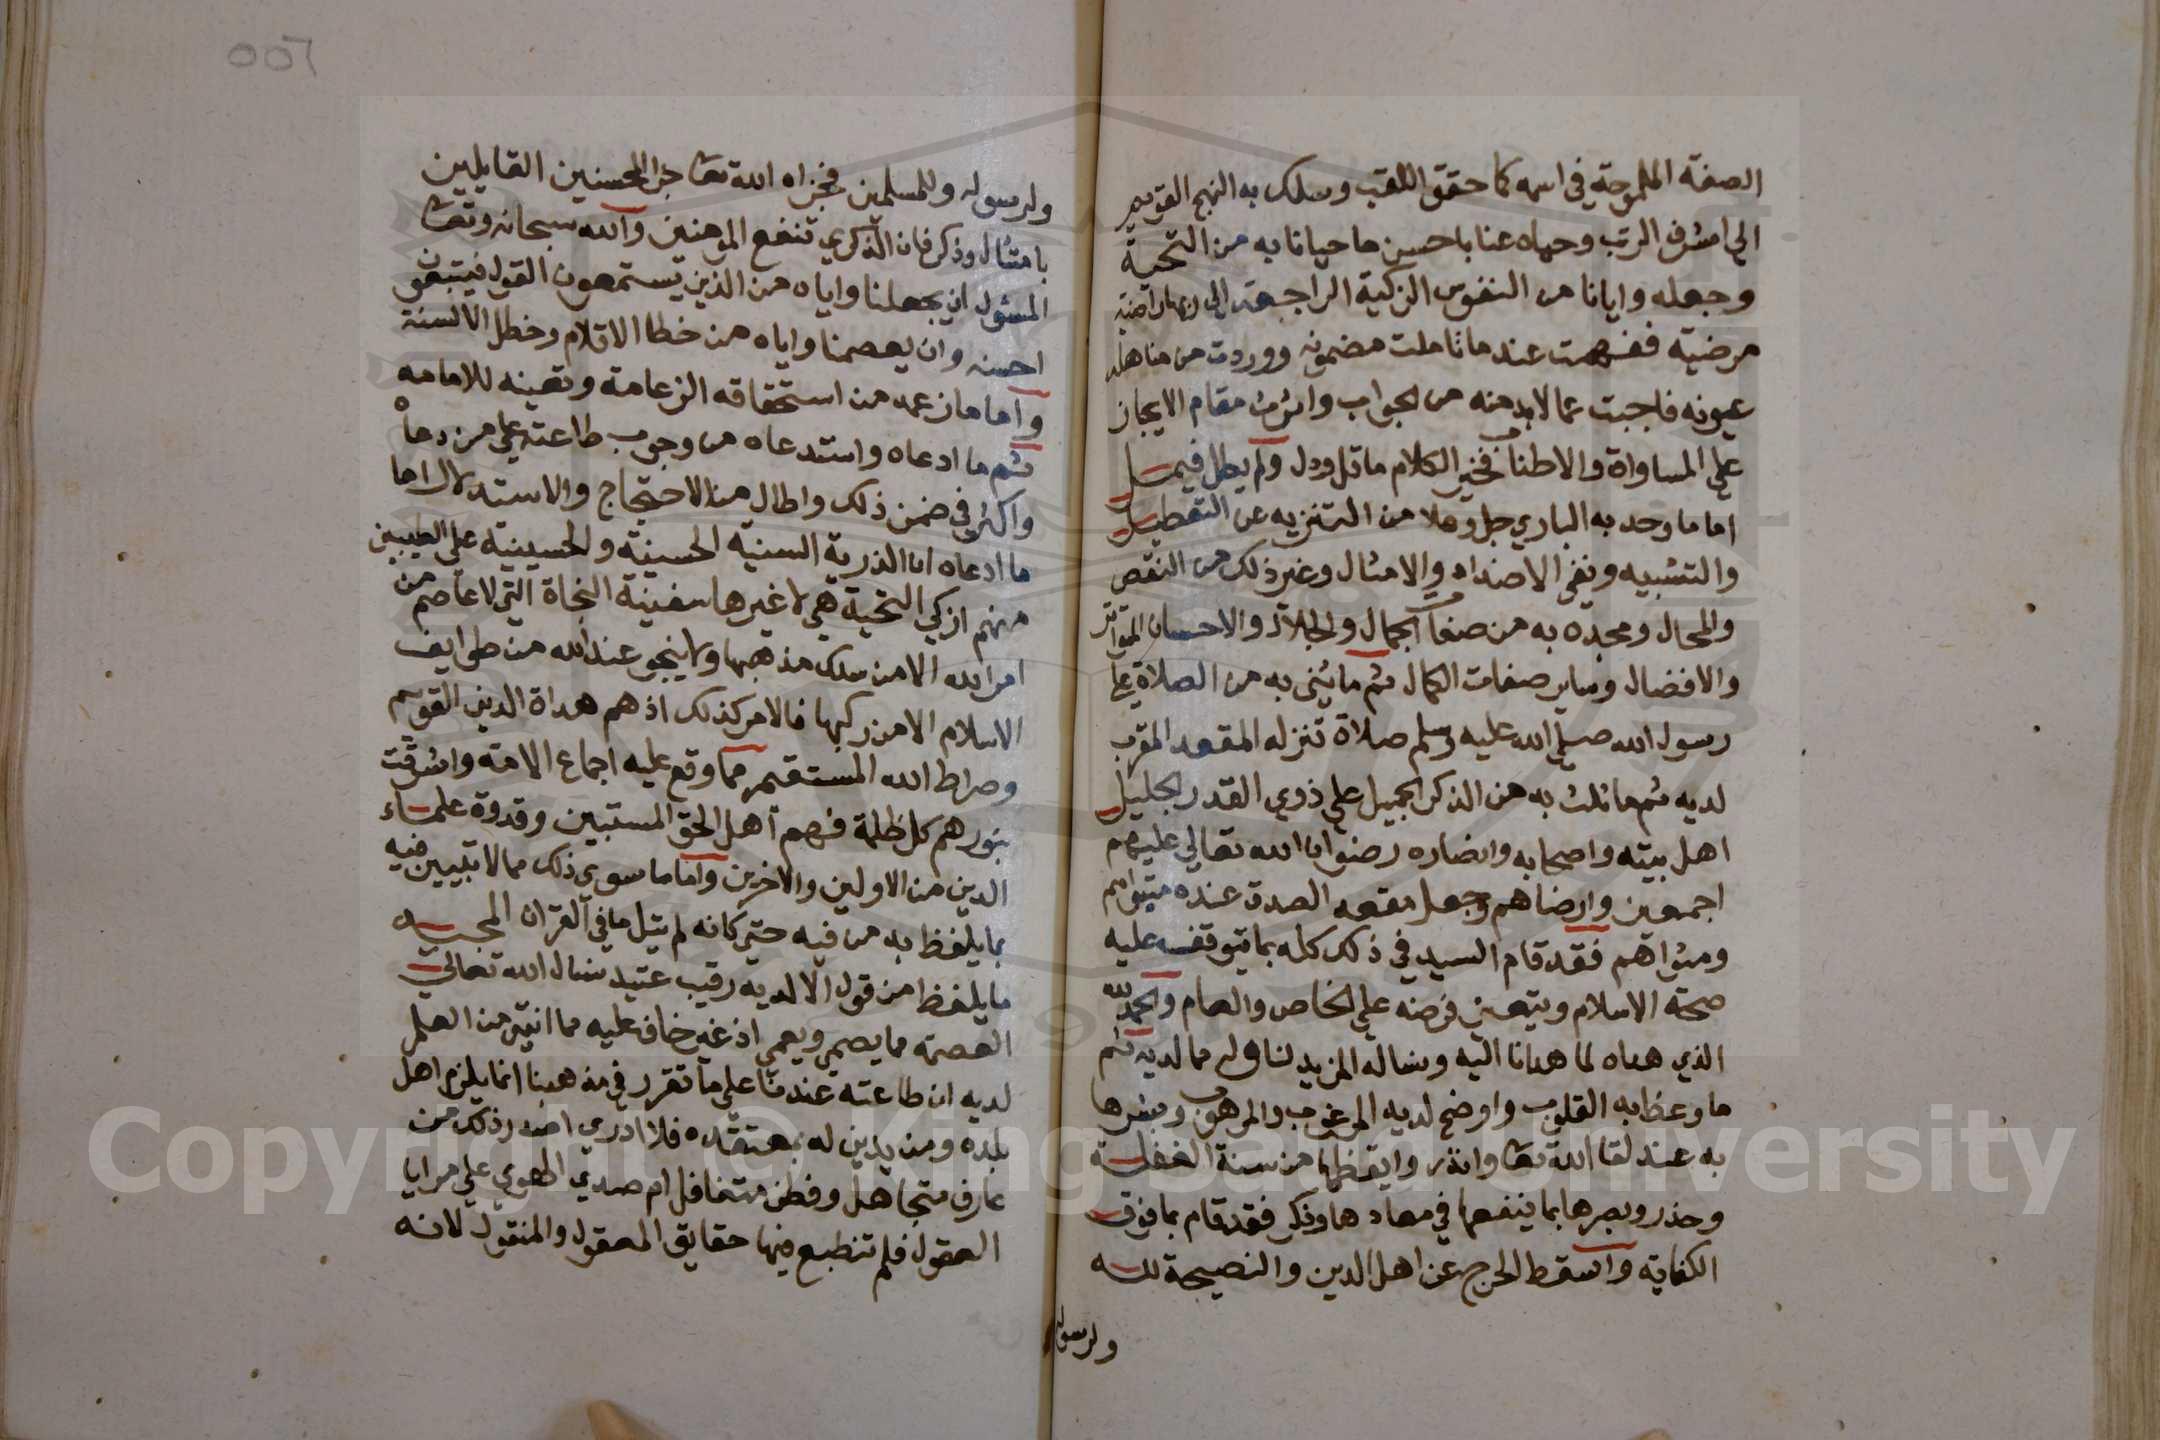 الصفة الملموحة في اسمه كما حقق اللقب وسلك به النهج القويم
الي اشرف الرتب وحياه عنا باحسن ما حيانا به من التحية
وجعله وايانا من النفوس الزكية الراجعة الي ربها راضية
مرضية ففهمت عند ما تاملت مضمونه ووردت من مناهله
عيونه فاجبت عما لابد منه من الجواب واثرت مقام الايجاز
علي المساواة والاطناب فخير الكلام ما قل ودل ولم يطل فيمل
اما ما وحد به الباري جل وعلا من التنزيه عن التعطيل
والتشبيه ونفي الاضداد والامثال وغير ذلك من النقص
والمحال ومجده به من صفات الجمال والجلال والاحسان المتواتر
والافضال وساير صفات الكمال ثم ما يثني به من الصلاة علي
رسول الله صلي الله عليه وسلم صلاة تنزله المقعد المقرب
لديه ثم ما ثلث به من الذكر الجميل علي ذوي القدر الجليل
اهل بيته واصحابه وانصاره رضوان الله تعالي عليهم
اجمعين وارضاهم وجعل مقعد الصدق عنده متبواهم
ومثواهم فقد قام السيد في ذلك كله بما يتوقف عليه
صحة الاسلام ويتعين فرضه علي الخاص والعام والحمد لله
الذي هداه لما هدانا اليه ونساله المزيد لنا وله مما لديه ثم
ما وعظ به القلوب واوضح لديه المرغوب والمرهوب وبشرها
به عند لقا الله تعا وانذر وايقظها من سنة الغفلة
وحذر وبصرها بما ينفعها في معادها وذكر فقد قام بما فوق
الكفاية واسقط الحرج عن اهل الدين والنصيحة لله
ولرسوله
٥٥٦
ولرسوله وللمسلمين فجزاه الله تعا جزا المحسنين القايلين
بامتثال وذكر فان الذكري تنفع المومنين والله سبحانه وتعا
المسئول ان يجعلنا واياه من الذين يستمعون القول فيتبعون
احسنه وان يعصمنا واياه من خطا الاقلام وخطل الالسنة
واما ما زعمه من استحقاقه الزعامة وتعينه للامامه
ثم ما ادعاه واستدعاه من وجوب طاعته علي من دعاه
واكثر في ضمن ذلك واطال من الاحتجاج والاستدلال اما
ما ادعاه ان الذرية السنيه الحسنية والحسينية علي الطيبين
منهم ازكي التحية هي لا غيرها سفينة النجاة التي لا عاصم من
امر الله الا من سلك مذهبها ولا ينجو عند الله من طوايف
الاسلام الا من ركبها فالامر كذلك اذ هم هداة الدين القويم
وصراط الله المستقيم مما وقع عليه اجماع الامة واشرقت
بنورهم كل ظلمة فهم اهل الحق المستبين وقدوة علماء
الدين من الاولين والاخرين واما ما سوي ذلك مما لا تبيين فيه
بما يلفظ به من فيه حتي كانه لم يتل ما في القران المجيد
ما يلفظ من قول الا لديه رقيب عتيد نسال الله تعالي
العصمة مما يصم ويعمي اذ غير خاف عليه مما انتثر من العلم
لديه ان طاعته عندنا علي ما تقرر في مذهبنا انما يلزم اهل
بلده ومن يدين له بمعتقده فلا ادري اصدر ذلك من
عارف متجاهل وفطن متغافل ام صدي الهوي علي مرايا
العقول فلم تنطبع فيها حقايق المعقول والمنقول لانه
Copyright © King Saud University